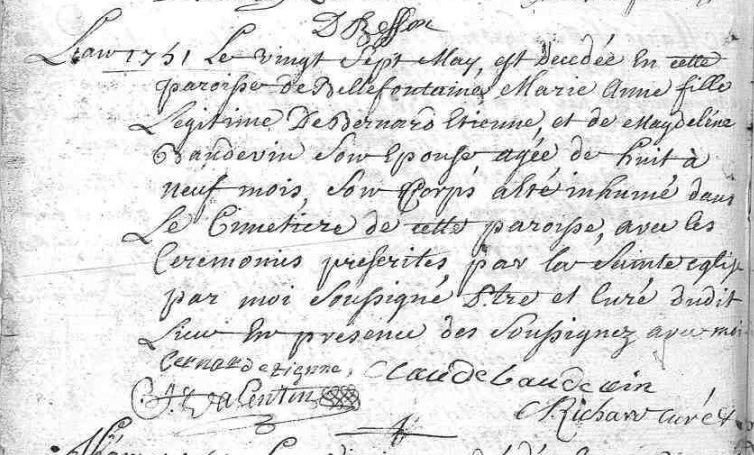 L'an 1751 Le vingt Sept May, est Decedée En cette
paroisse de Bellefontaine, Marie Anne fille
Legitime De Bernard Etienne, et de Magdeleine
Baudevin Son Epouse agée de huit à
neuf mois, Son Corps a eté inhumé dans
Le Cimetiere de cette paroisse, avec les
Ceremonies prescrites, par la Sainte eglise
par moi Soussigné Ptre et Curé dudit
Lieu En presence des Soussignez avec moi
Bernard etienne, Claude baudevin
Valentin
Richard curé